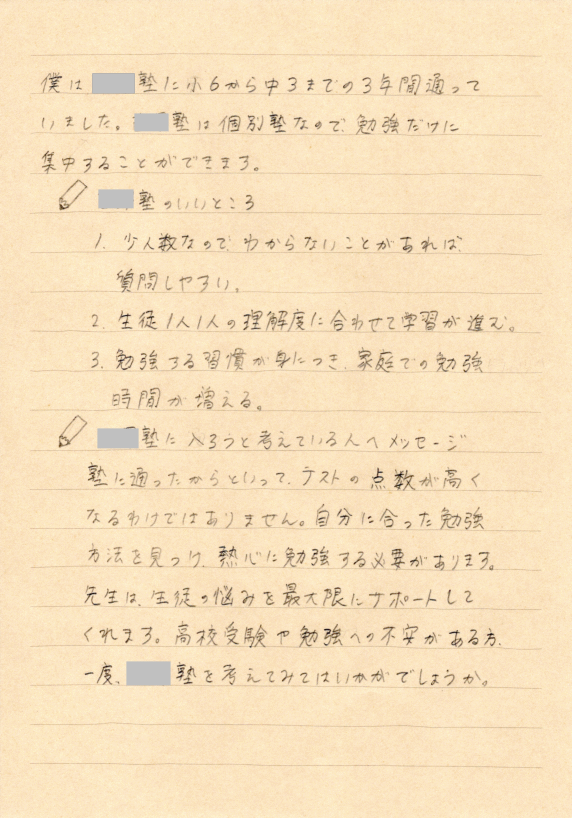 僕は塾に小6から中3までの3年間通って
いました。塾は個別塾なので、勉強だけに
集中することができます。
塾のいいところ
1. 少人数なので、わからないことがあれば、
質問しやすい。
2. 生徒1人1人の理解度に合わせて学習が進む。
3. 勉強する習慣が身につき、家庭での勉強
時間が増える。
塾に入ろうと考えている人へメッセージ
塾に通ったからといって、テストの点数が高く
なるわけではありません。自分に合った勉強
方法を見つけ、熱心に勉強する必要があります。
先生は、生徒の悩みを最大限にサポートして
くれます。高校受験や勉強への不安がある方、
一度、塾を考えてみてはいかがでしょうか。